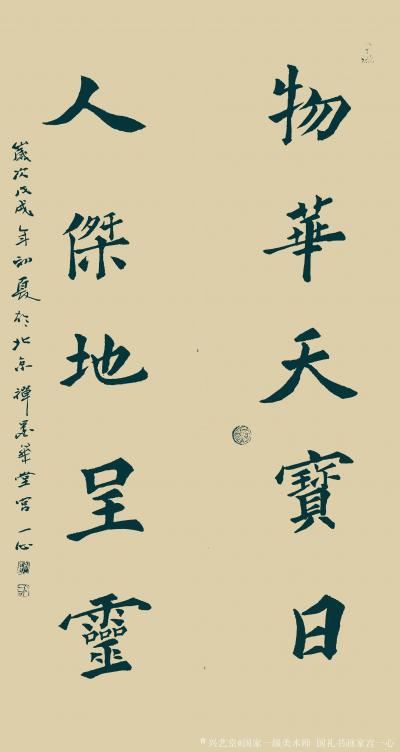 物華天寶日
人傑地呈靈
歲次戊戌年初夏於北京禪墨華堂宫一心
兴艺堂@国家一级美术师 国礼书画家宫一心